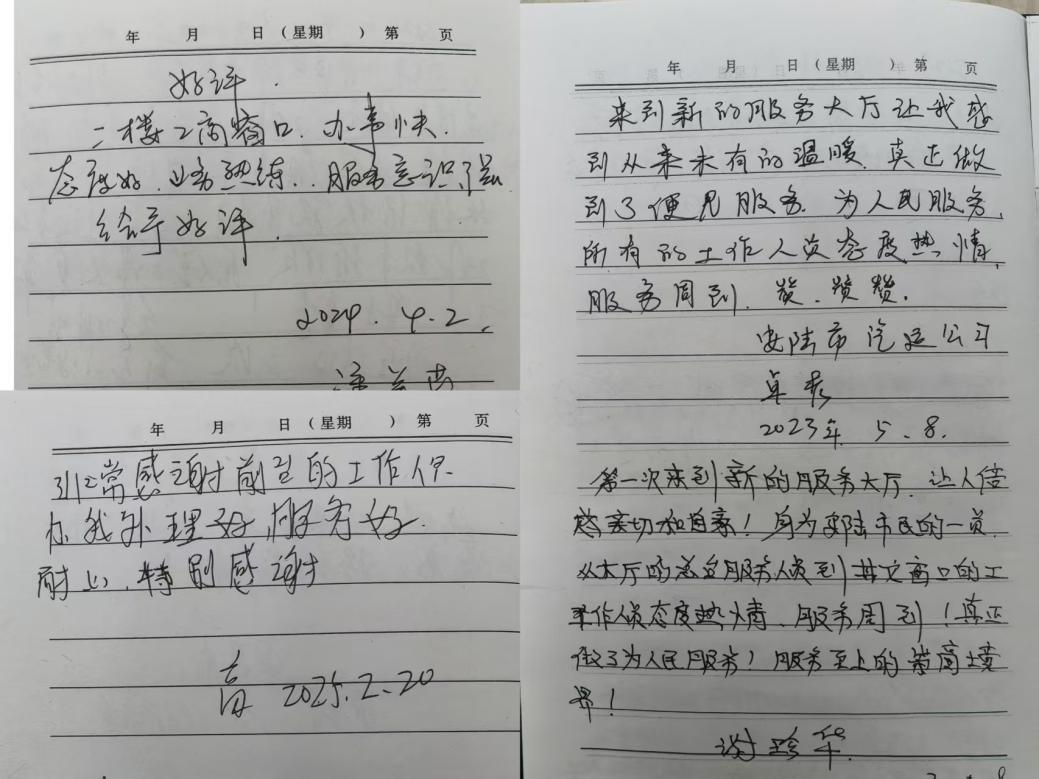 年 月 日（星期 ）第 页
好评.
二楼工商窗口. 办事快.
态度好. 业务熟练.. 服务意识强
给予好评.
2024. 4. 2.
年 月 日（星期 ）第 页
非常感谢前台的工作人
我 理好 服务好.
耐心. 特别感谢
2025. 2. 20
年 月 日（星期 ）第 页
来到新的服务大厅让我感
到从来未有的温暖. 真正做
到了便民服务. 为人民服务.
所有的工作人员态度热情,
服务周到. 赞. 赞赞.
安陆市汽运公司
卓
2023年. 5. 8.
第一次来到新的服务大厅. 让人倍
感亲切和自豪！身为安陆市民的一员.
从大厅的总台服务人员到其它窗口的工
作人员态度热情、服务周到！真正
做了为人民服务！服务至上的崇高境
界！
谢珍华